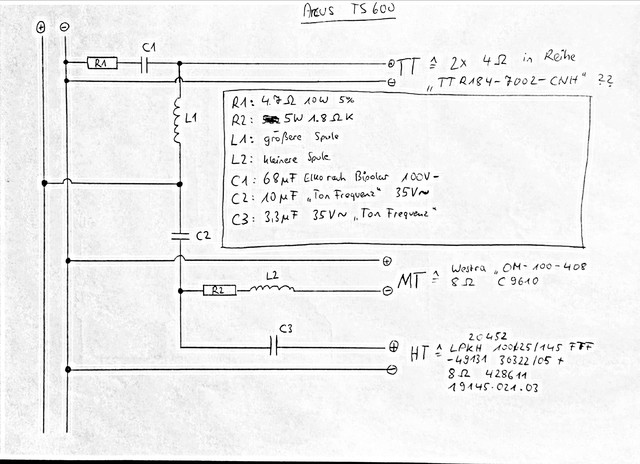 Arcus TS 600
⊕ ⊖
C1
R1
⊕ TT ≙ 2x 4Ω in Reihe
⊖ "TTR184-7002-CNH" ??
L1
R1: 4.7Ω 10W 5%
R2: 5W 1.8Ω K
L1: größere Spule
L2: kleinere Spule
C1: 68µF Elko rauh Bipolar 100V-
C2: 10µF "Ton Frequenz" 35V~
C3: 3,3µF 35V~ "Ton Frequenz"
C2
⊕
MT ≙ Westra "OM-100-408
8Ω C9610
L2
R2 ⊖
C3
⊕
⊖
HT ≙ 20452
LPKH 100/25/145 FFF
-49131 30322/05 +
8Ω 428611
19145.021.03